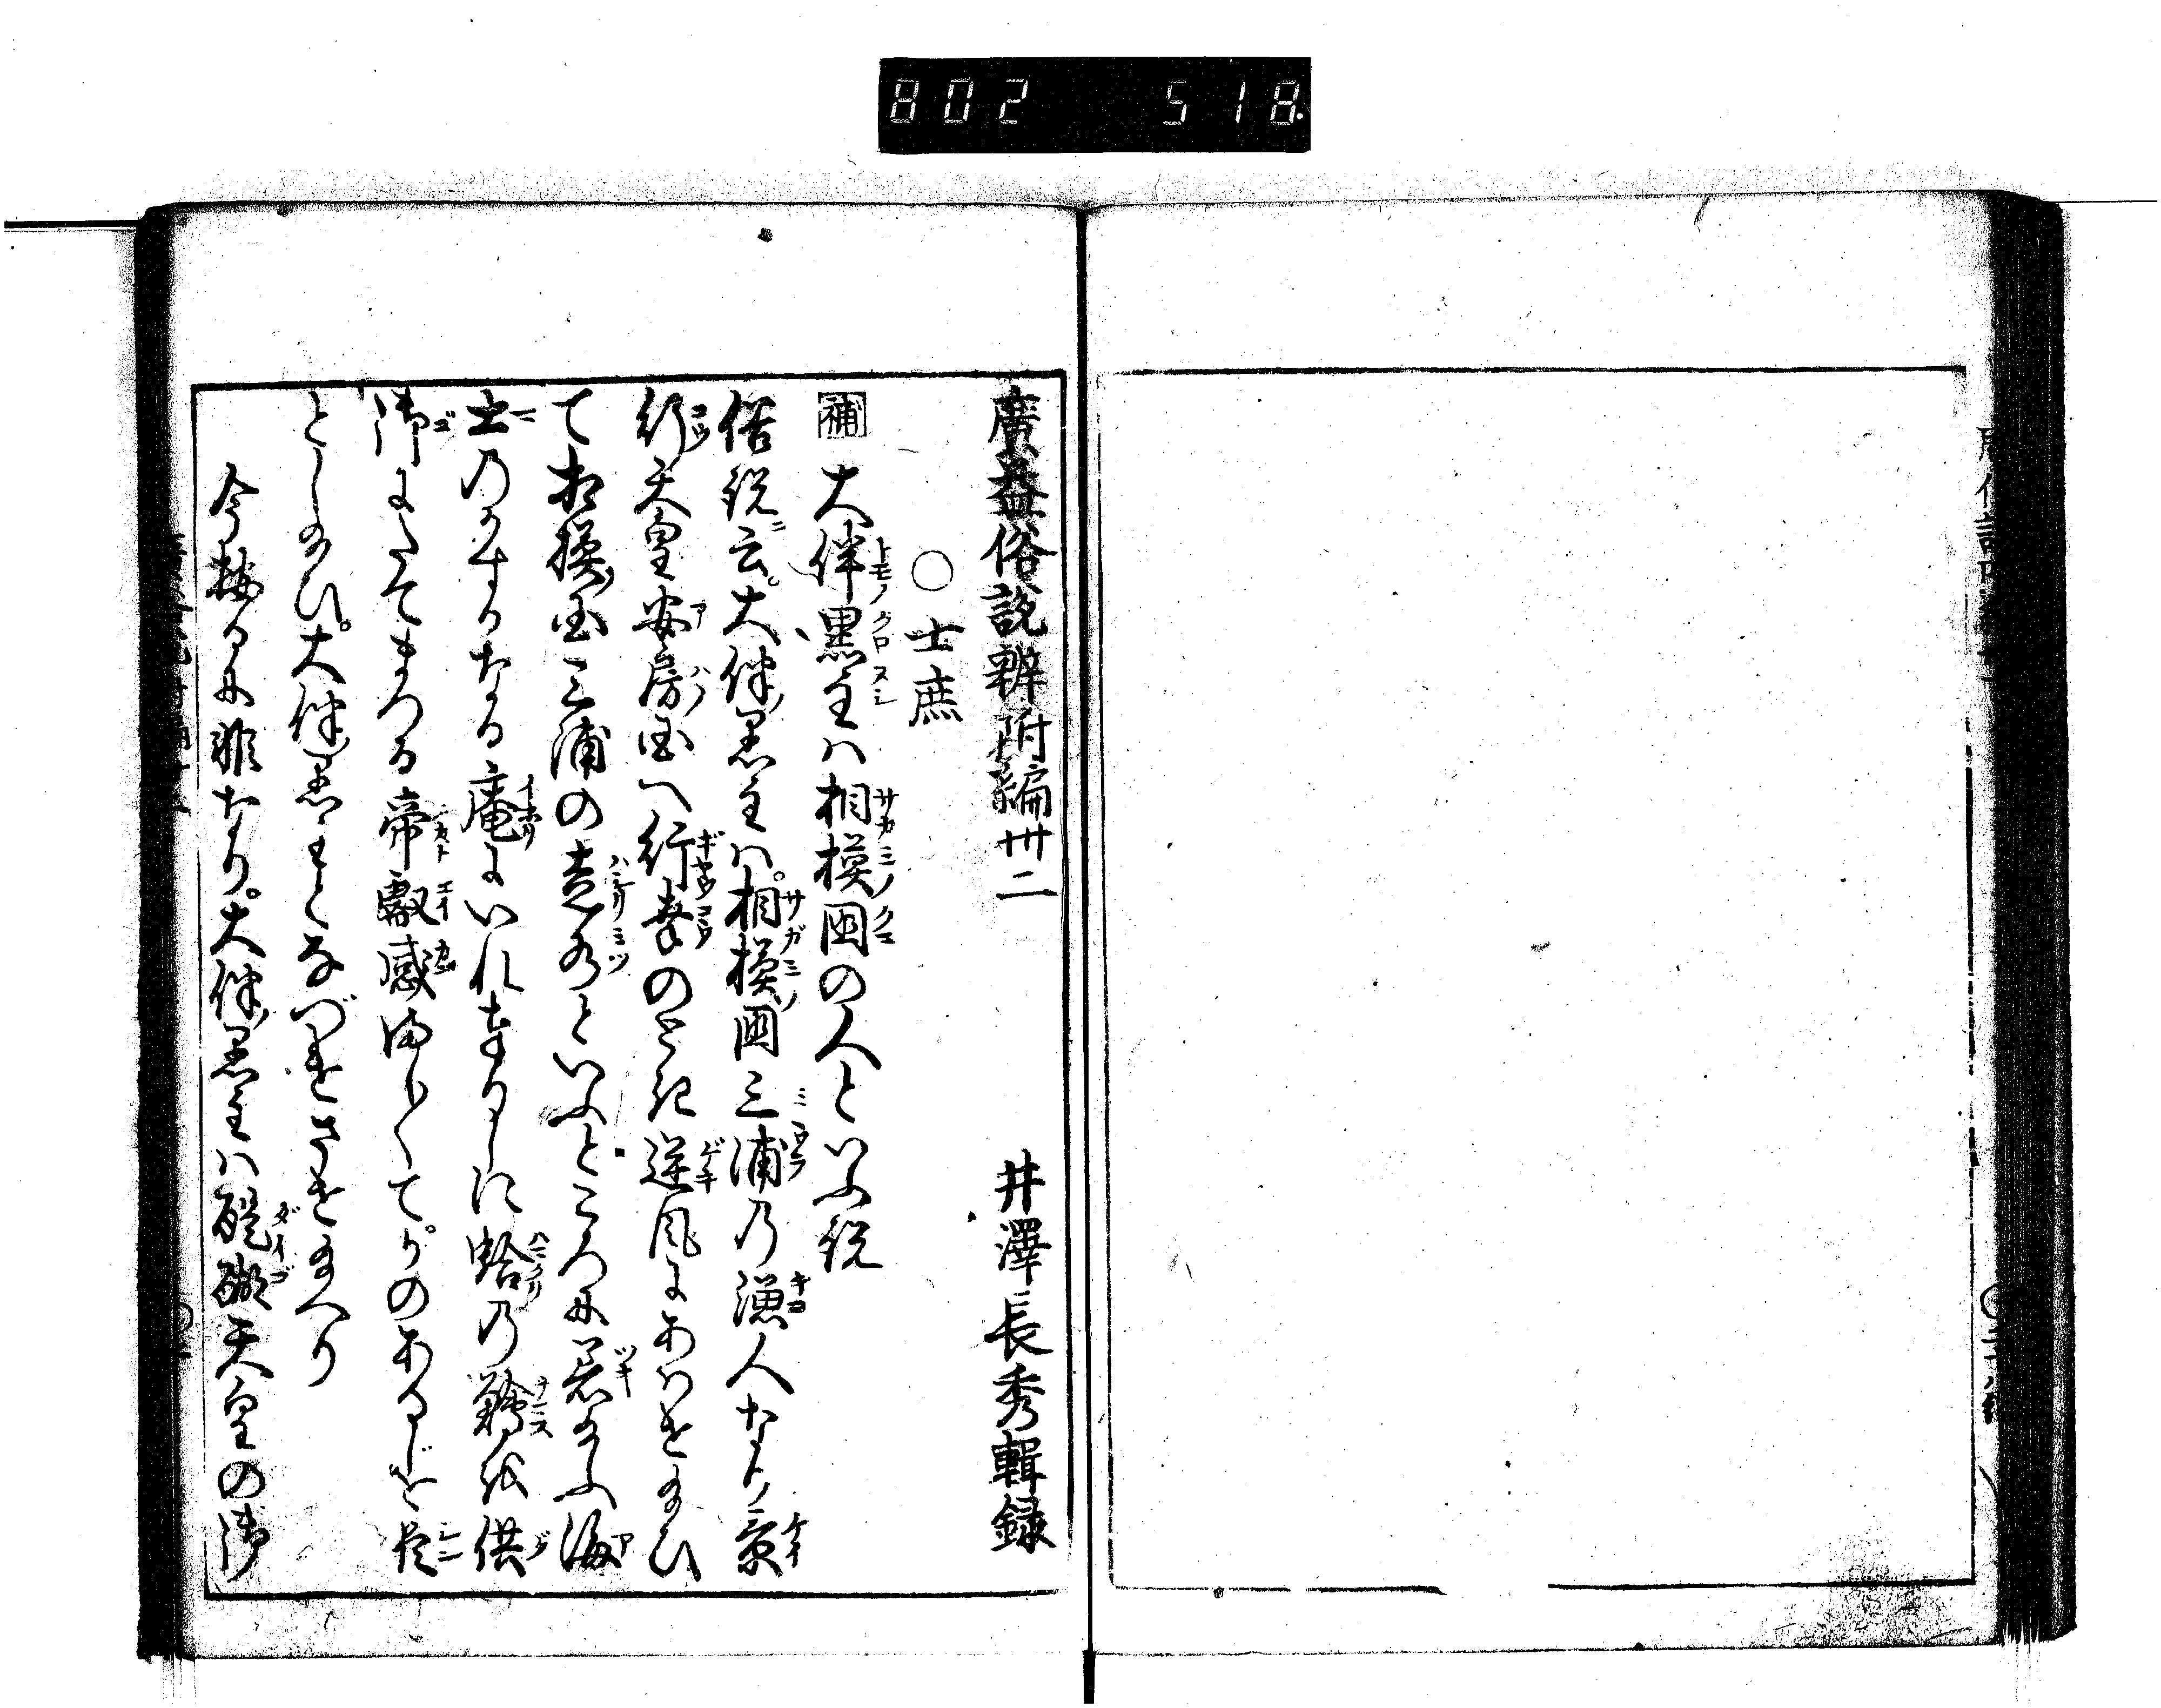 802 518
廣益俗説辯附編卅二 井澤長秀輯録
○士庶
補 大伴黒主ハ相模國の人といふ説
俗説ニ云。大伴黒主ハ。相模國三浦乃漁人なり景
行天皇安房国へ行幸のとき逆風にあはせ給ひ
て相模国三浦の走水といふところに着給ふ海
士のかすかなる庵にいれ奉るに蛤乃鱠を供
御にたてまつる帝叡感ありてかのあるじを大
とし給ひ。大伴黒主となづけさせ給へり
今按るに非なり。大伴黒主ハ醍醐天皇の御